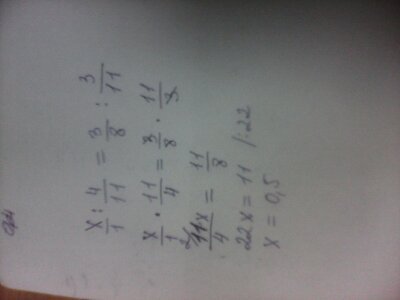 x/1 : 4/11 = 3/8 : 3/11
x/1 · 11/4 = 3/8 · 11/3
2/ 11x/4 = 11/8
22x = 11 /:22
x = 0,5